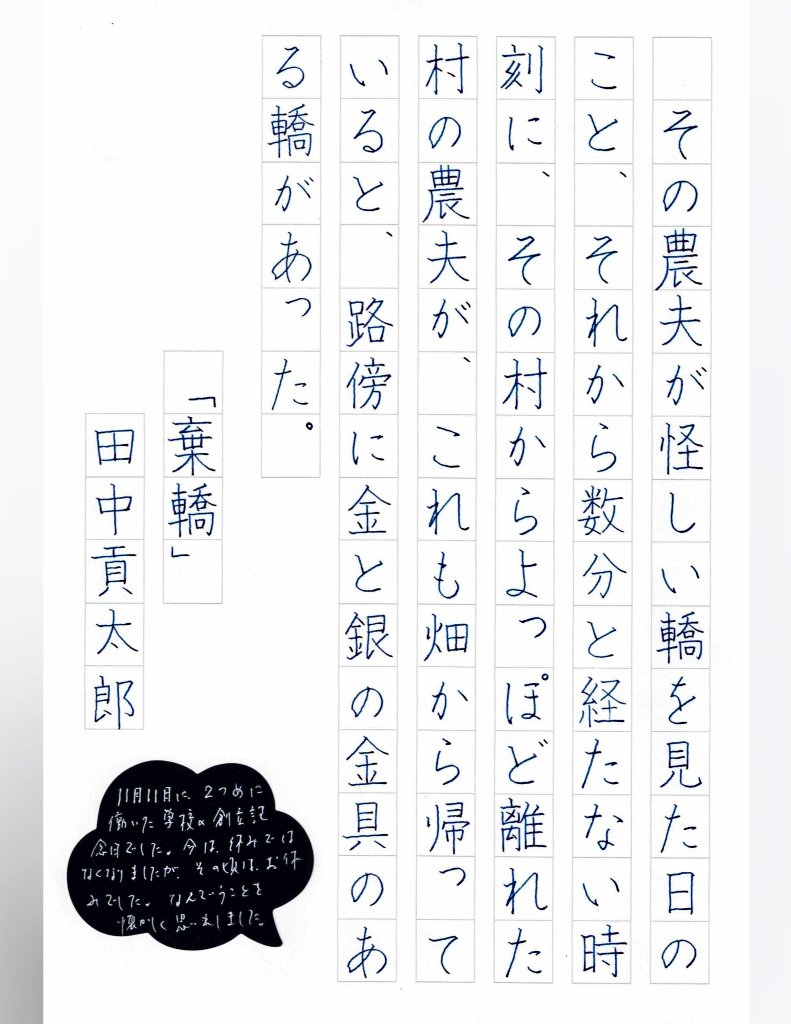 その農夫が怪しい轎を見た日の
こと、それから数分と経たない時
刻に、その村からよっぽど離れた
村の農夫が、これも畑から帰って
いると、路傍に金と銀の金具のあ
る轎があった。
「棄轎」
田中貢太郎
11月11日に、2つめに
働いた学校の創立記
念日でした。今は、休みでは
なくなりましたが、その頃は、お休
みでした。なんていうことを
懐かしく思い出しました。